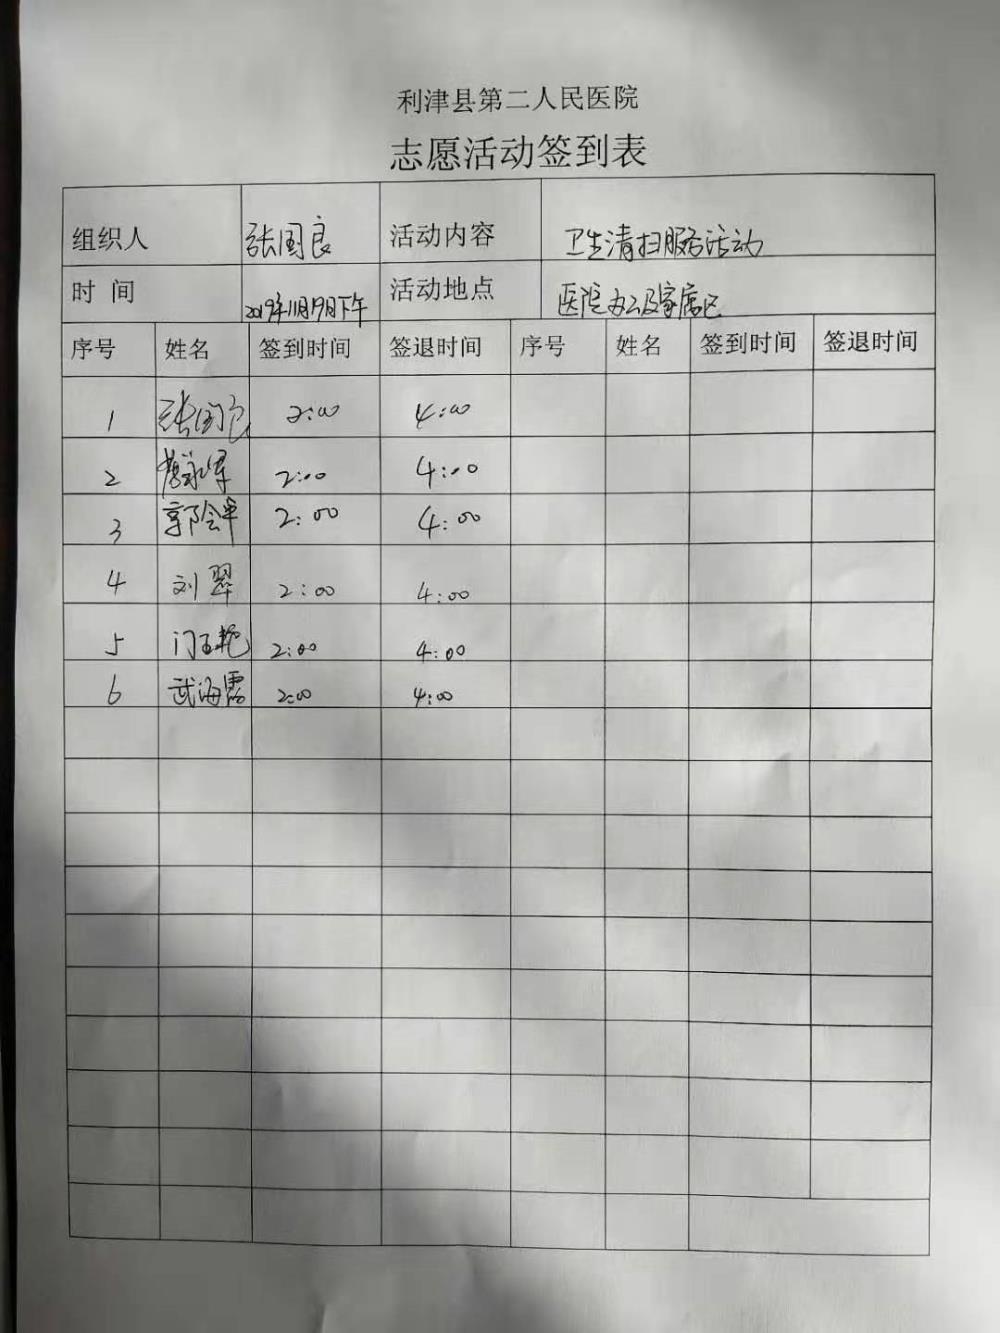 利津县第二人民医院
志愿活动签到表
组织人 张国良 活动内容 卫生清扫服务活动
时 间 2019年11月19日下午 活动地点 医院办公及家属区
序号 姓名 签到时间 签退时间 序号 姓名 签到时间 签退时间
1 张国良 2:00 4:00
2 2:00 4:00
3 郭会军 2:00 4:00
4 刘翠 2:00 4:00
5 门玉艳 2:00 4:00
6 武海霞 2:00 4:00